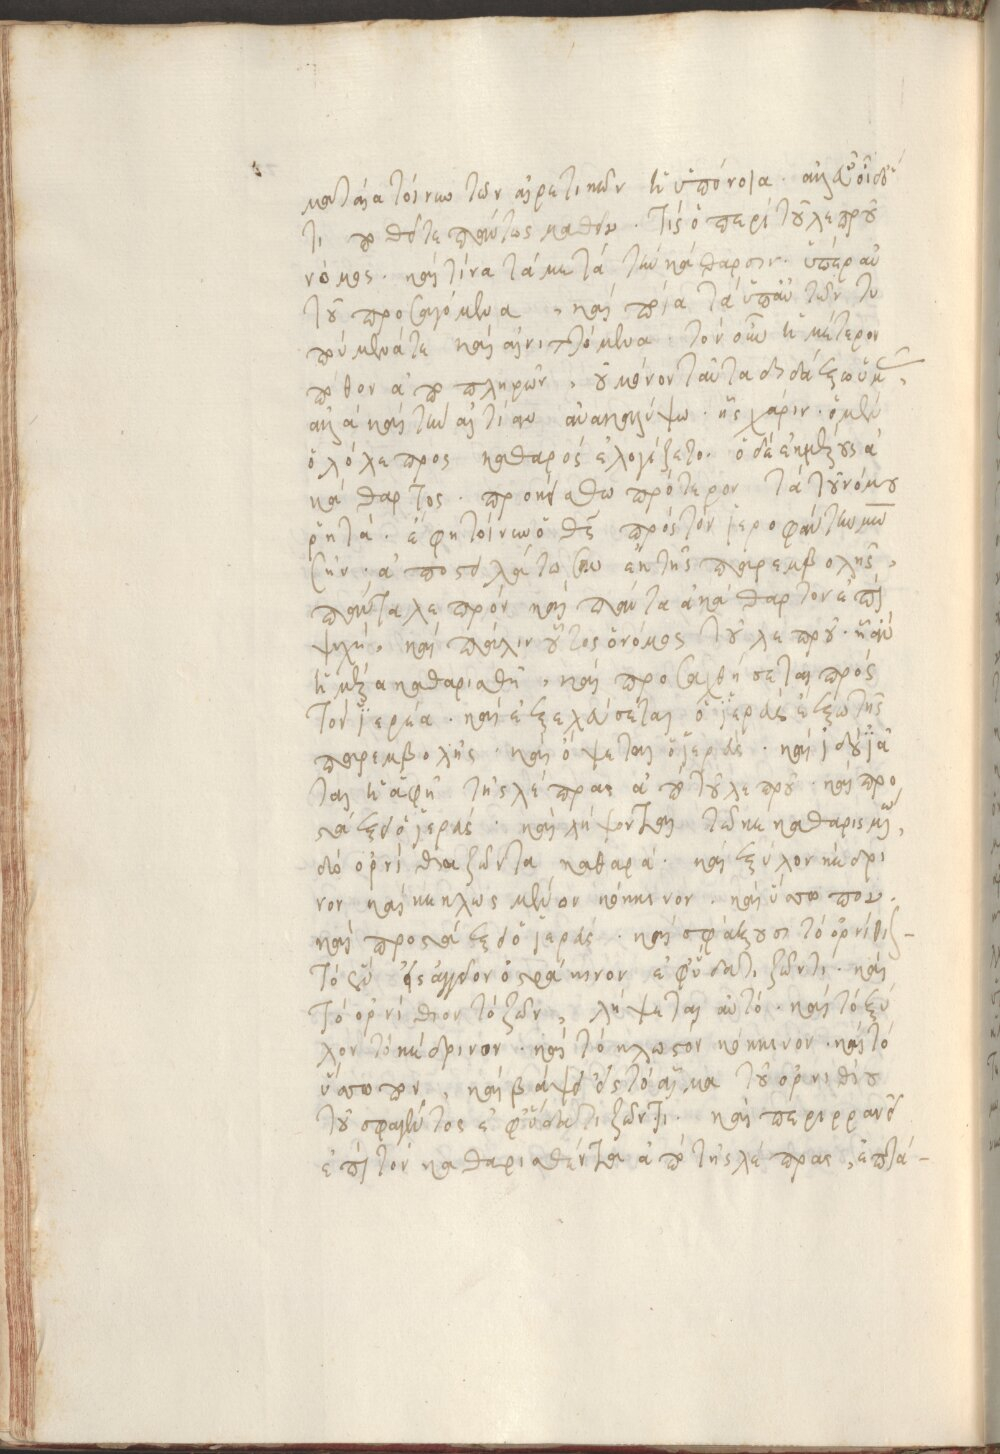 ματαία τοίνυν τῶν αἱρετικῶν ἡ ὑπόνοια. ἀλλ' οἶδ' ὅ
τι ποθεῖτε πάντως μαθεῖν. τίς ὁ περὶ τοῦ λεπροῦ
νόμος. καὶ τίνα τὰ μετὰ τὴν κάθαρσιν. ὑπὲρ αὐ
τοῦ προσαγόμενα, καὶ ποῖα τὰ ὑπ' αὐτῶν τυ
πούμενά τε καὶ αἰνιττόμενα. τὸν οὖν ἡμέτερον
πόθον ἀποπληρῶν, οὐ μόνον ταῦτα διδάξω ὑμᾶς,
ἀλλὰ καὶ τὴν αἰτίαν ἀνακαλύψω. ἧς χάριν. ὁ μὲν
ὁλόλεπρος καθαρὸς ἐλογίζετο. ὁ δὲ ἐκ μέρους ἀ
κάθαρτος. προκείσθω πρότερον τὰ τοῦ νόμου
ῥητά. ἔφη τοίνυν ὁ θεὸς πρὸς τὸν ἱεροφάντην μωυ
σῆν. ἀποστειλάτωσαν ἐκ τῆς παρεμβολῆς,
πάντα λεπρὸν καὶ πάντα ἀκάθαρτον ἐπὶ
ψυχῇ. καὶ πάλιν οὗτος ὁ νόμος τοῦ λεπροῦ. ᾗ ἂν
ἡμέρᾳ καθαρισθῇ, καὶ προσαχθήσεται πρὸς
τὸν ἱερέα. καὶ ἐξελεύσεται ὁ ἱερεὺς ἔξω τῆς
παρεμβολῆς. καὶ ὄψεται ὁ ἱερεύς. καὶ ἰδοὺ ἰᾶ
ται ἡ ἁφὴ τῆς λέπρας ἀπὸ τοῦ λεπροῦ. καὶ προ
στάξει ὁ ἱερεύς. καὶ λήψονται τῷ κεκαθαρισμένῳ,
δύο ὀρνίθια ζῶντα καθαρά. καὶ ξύλον κέδρι
νον καὶ κεκλωσμένον κόκκινον. καὶ ὕσσωπον.
καὶ προστάξει ὁ ἱερεύς. καὶ σφάξουσι τὸ ὀρνίθιον
τὸ ἓν εἰς ἀγγεῖον ὀστράκινον ἐφ' ὕδατι ζῶντι. καὶ
τὸ ὀρνίθιον τὸ ζῶν, λήψεται αὐτό. καὶ τὸ ξύ
λον τὸ κέδρινον. καὶ τὸ κλωστὸν κόκκινον. καὶ τὸ
ὕσσωπον, καὶ βάψει εἰς τὸ αἷμα τοῦ ὀρνιθίου
τοῦ σφαγέντος ἐφ' ὕδατι ζῶντι. καὶ περιρρανεῖ
ἐπὶ τὸν καθαρισθέντα ἀπὸ τῆς λέπρας, ἑπτά-